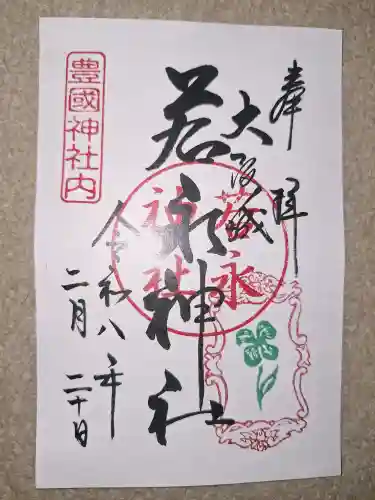 奉拝
大阪城
若永神社
若永神社
令和八年
二月二十日
豊國神社内